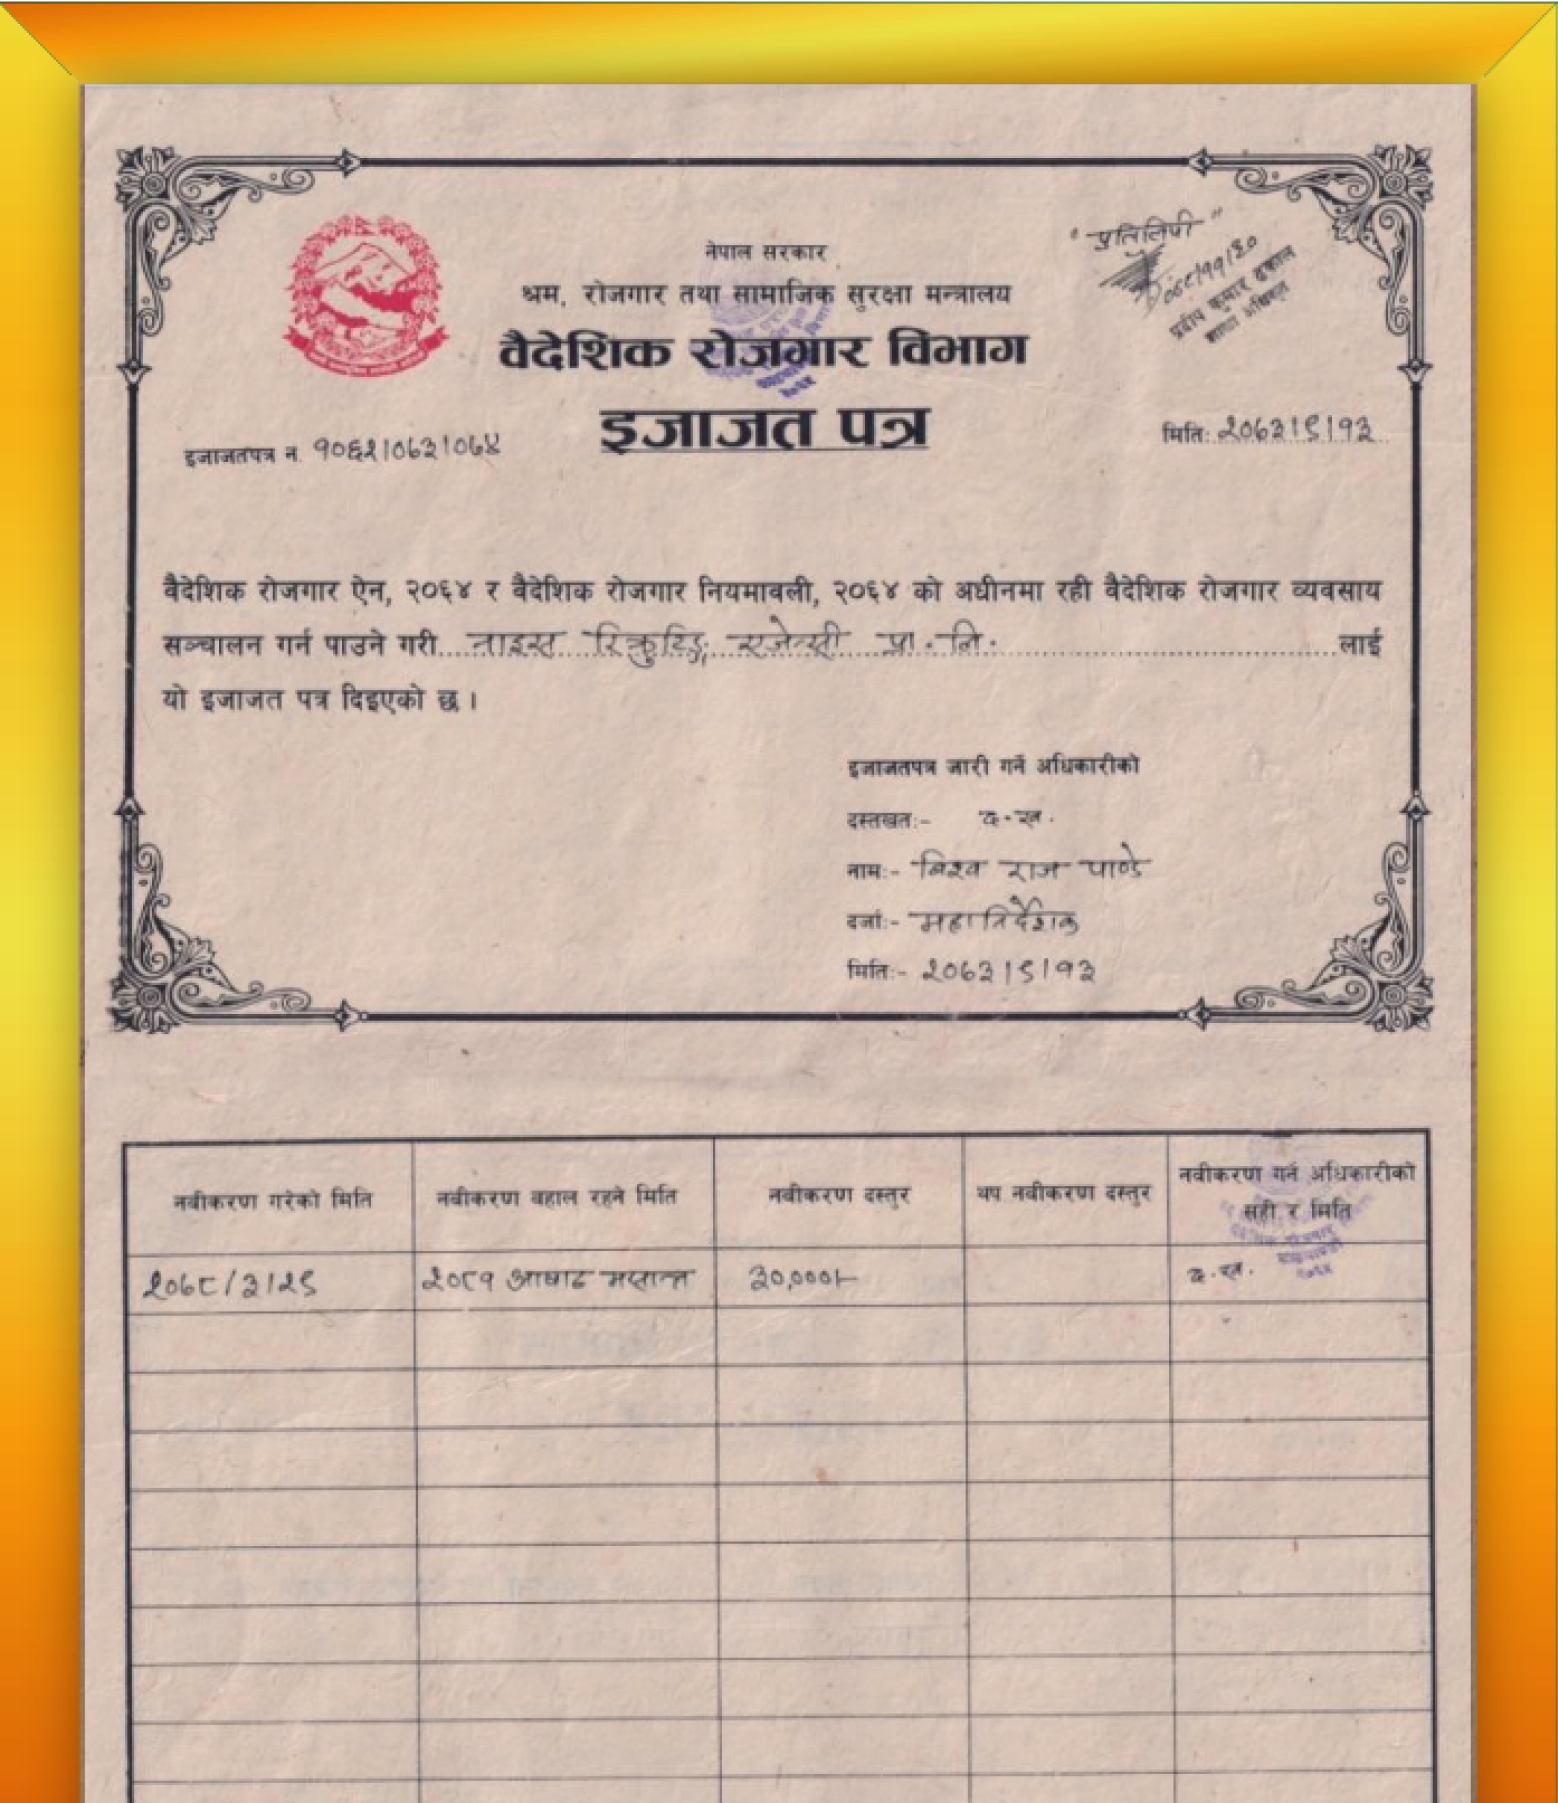 " प्रतिलिपी "
नेपाल सरकार
श्रम, रोजगार तथा सामाजिक सुरक्षा मन्त्रालय
वैदेशिक रोजगार विभाग
इजाजत पत्र
इजाजतपत्र न. १०६२।०६३।०६४
मिति: २०६३।९।१३
वैदेशिक रोजगार ऐन, २०६४ र वैदेशिक रोजगार नियमावली, २०६४ को अधीनमा रही वैदेशिक रोजगार व्यवसाय
सञ्चालन गर्न पाउने गरी नाइस रिक्रुटिङ्ग एजेन्सी प्रा. लि. लाई
यो इजाजत पत्र दिइएको छ ।
इजाजतपत्र जारी गर्ने अधिकारीको
दस्तखत:- द.ख.
नाम:- विश्व राज पाण्डे
दर्जा:- महानिर्देशक
मिति:- २०६३।९।१३
नवीकरण गरेको मिति नवीकरण बहाल रहने मिति नवीकरण दस्तुर थप नवीकरण दस्तुर नवीकरण गर्ने अधिकारीको
सही र मिति
२०७८/३/२९ २०८१ आषाढ मसान्त ३०,०००।- द.ख.